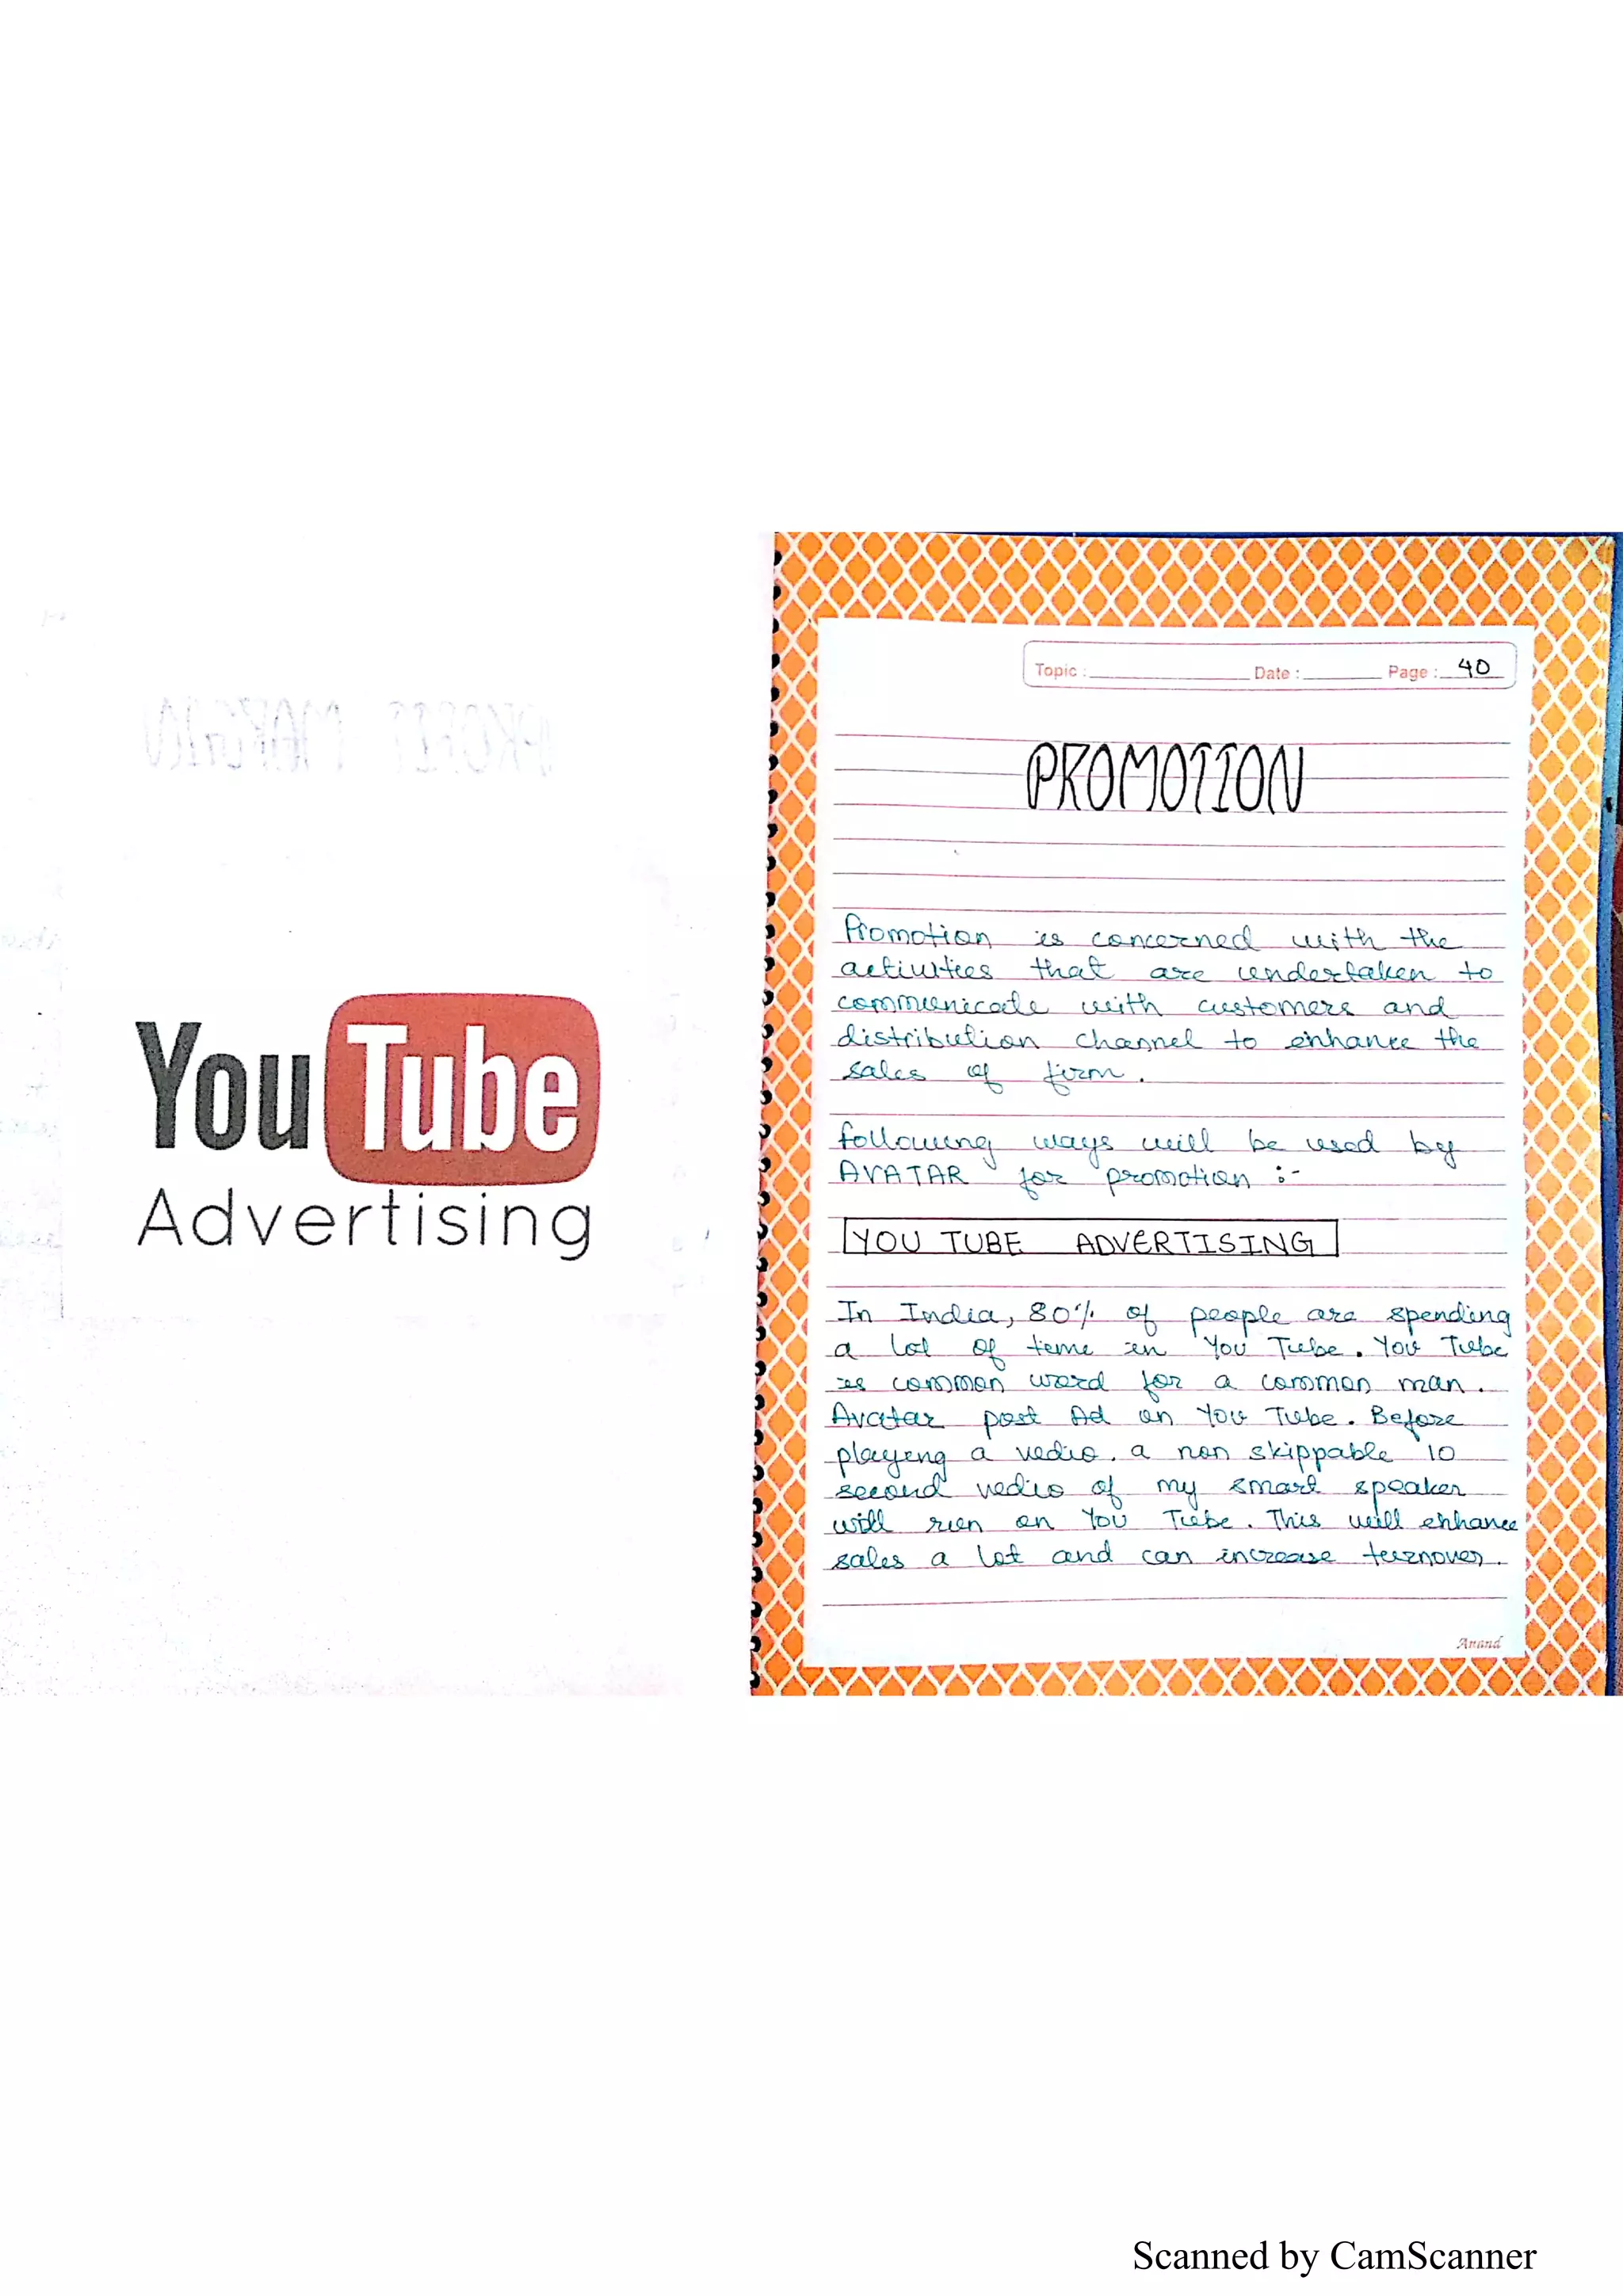 You Tube
Advertising
Topic : Date : Page : 40
PROMOTION
Promotion is concerned with the
activities that are undertaken to
communicate with customers and
distribution channel to enhance the
sales of firm.
following ways will be used by
AVATAR for promotion :-
YOU TUBE ADVERTISING
In India, 80% of people are spending
a lot of time in You Tube. You Tube
is common word for a common man.
Avatar post Ad on You Tube. Before
playing a vedio, a non skippable 10
second vedio of my smart speaker
will run on You Tube. This will enhance
sales a lot and can increase turnover.
Anand
Scanned by CamScanner